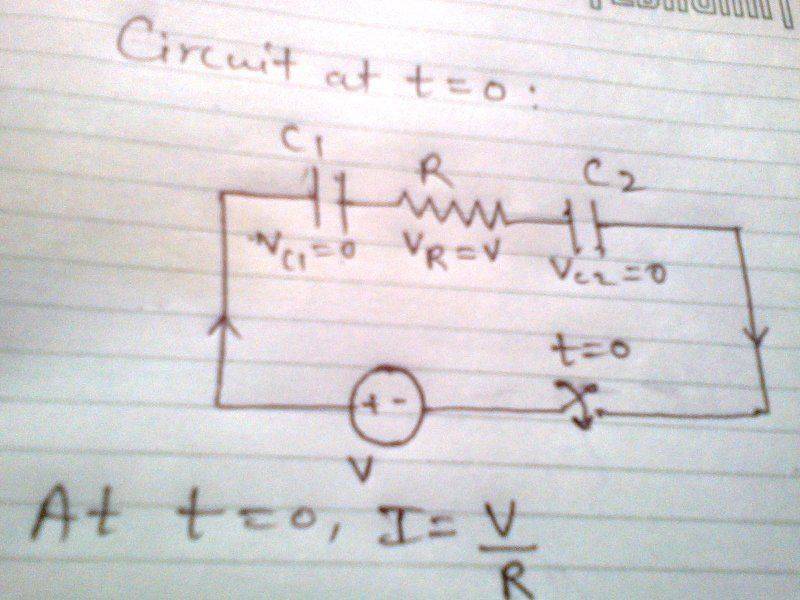 Circuit at t=0:
C1
R
C2
VC1=0
VR=V
VC2=0
t=0
+ -
V
At t=0, I=V/R